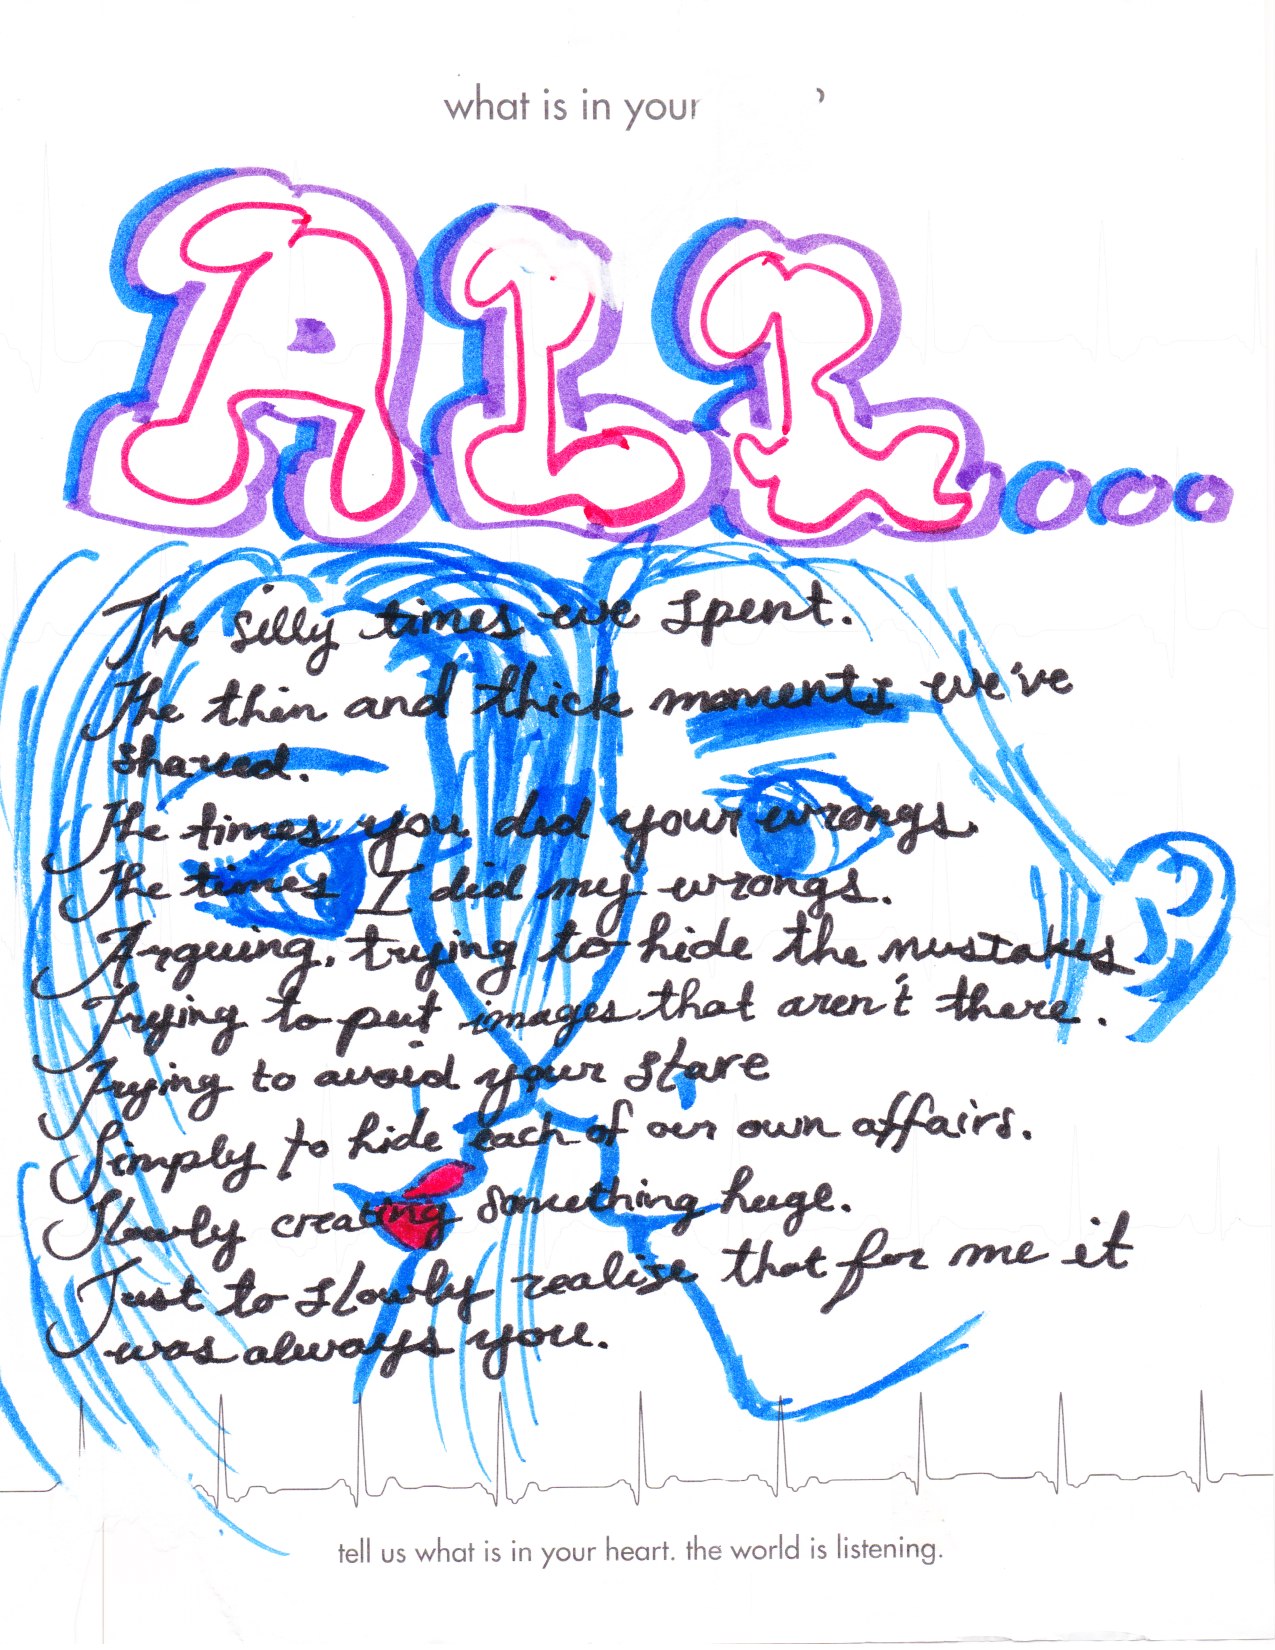 what is in your
ALL....
The silly times we spent.
The thin and thick moments we've
shared.
The times you did your wrongs.
The times I did my wrongs.
Arguing, trying to hide the mustakes
Trying to put images that aren't there.
Trying to avoid your stare
Simply to hide each of our own affairs.
Slowly creating something huge.
Just to slowly realize that for me it
was always you.
tell us what is in your heart. the world is listening.